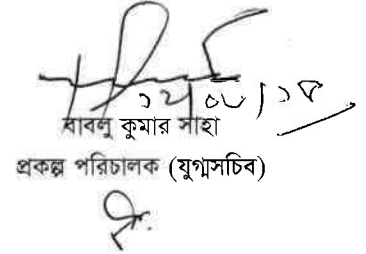 বাবলু কুমার সাহা
প্রকল্প পরিচালক (যুগ্মসচিব)